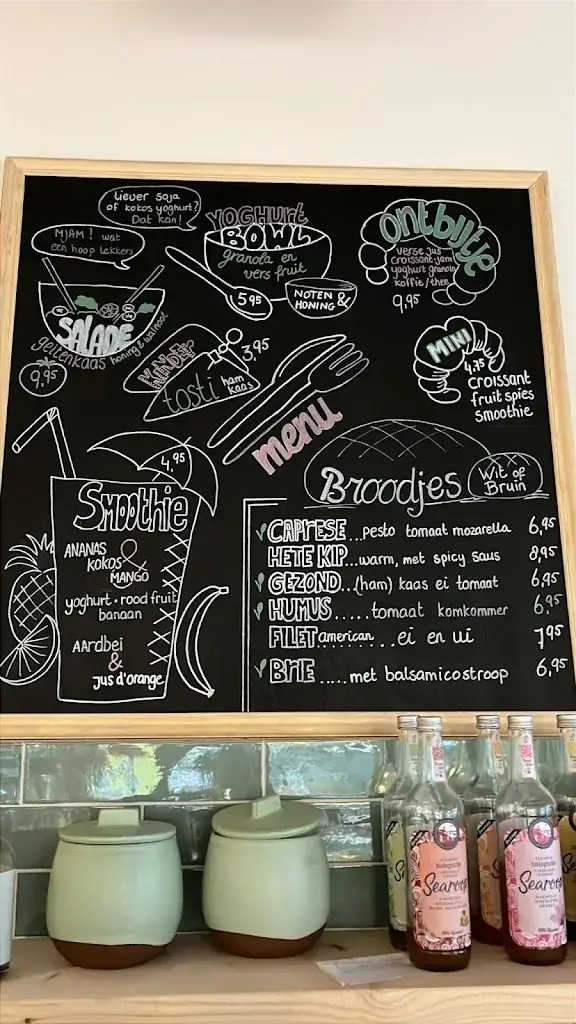 Liever soja
of kokos yoghurt?
Dat kan!
MJAM! wat
een hoop lekkers
SALADE
geitenkaas honing & walnoot
9,95
YOGHURT
BOWL
granola en
vers fruit
5,95
NOTEN &
HONING
ontbijtje
verse jus
croissant-jam
yoghurt granola
koffie/thee
9,95
tosti ham
kaas
3,95
MINI
4,75
croissant
fruit spies
smoothie
menu
4,95
Smoothie
ANANAS
kokos &
MANGO
yoghurt · rood fruit
banaan
Aardbei
&
jus d'orange
Broodjes
Wit of
Bruin
CAPRESE...pesto tomaat mozarella 6,95
HETE KIP...warm, met spicy saus 8,95
GEZOND...(ham) kaas ei tomaat 6,95
HUMUS.....tomaat komkommer 6,95
FILET american....ei en ui 7,95
BRIE.....met balsamicostroop 6,95